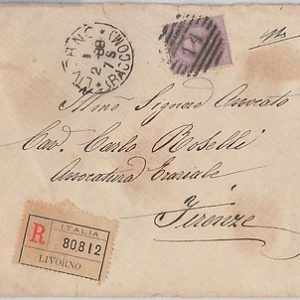 LIVORNO
(RACCOM
14
Illmo Signor Avvocato
Cav. Carlo Roselli
Avvocatura Erariale
Firenze
ITALIA
R 80812
LIVORNO